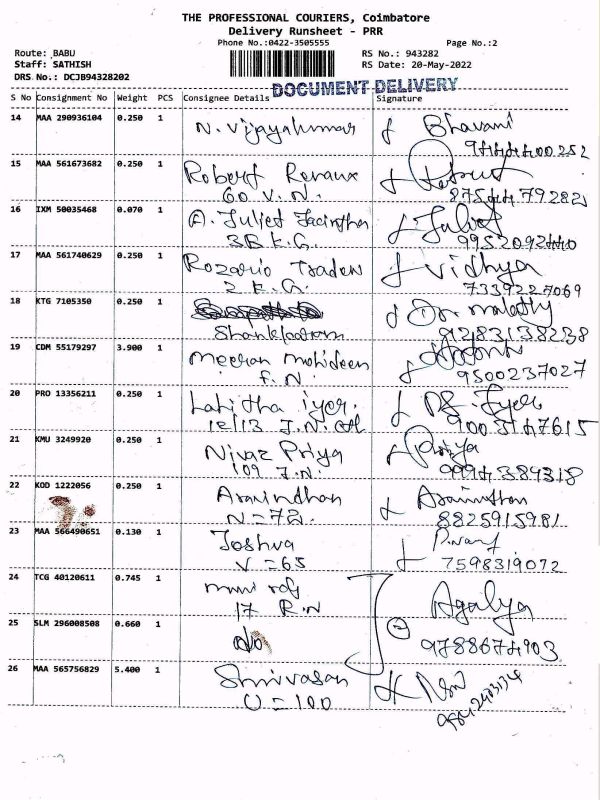 THE PROFESSIONAL COURIERS, Coimbatore
Delivery Runsheet - PRR
Phone No.:0422-3505555 Page No.:2
Route: BABU RS No.: 943282
Staff: SATHISH RS Date: 20-May-2022
DRS No.: DCJB94328202
DOCUMENT DELIVERY
S No Consignment No Weight PCS Consignee Details Signature
14 MAA 290936104 0.250 1 N. Vijayakumar Bhavani
15 MAA 561673682 0.250 1 Robert Revaux
60 V.N. 8754479282
16 IXM 50035468 0.070 1 A. Juliet Jacintha Juliet
3B K.G. 9952092440
17 MAA 561740629 0.250 1 Rozario Traders Vidhya
2 K.G. 7339227069
18 KTG 7105350 0.250 1 Dr. malathy
9283138238
19 CDM 55179297 3.900 1 Meeran Mohideen
F.N. 9500237027
20 PRO 13356211 0.250 1 Lalitha iyer.
12/13 J.N. 9003147615
21 KMU 3249920 0.250 1 Nivaz Priya Priya
109 J.N. 9994389318
22 KOD 1222056 0.250 1 Aravindhan
N=72. 8825915981
23 MAA 566490651 0.130 1 Joshva
V=65 7598319072
24 TCG 40120611 0.745 1 Agalya
17 R.N
25 SLM 296008508 0.660 1 do 2
9788674903
26 MAA 565756829 5.400 1 Srinivasan
U=100